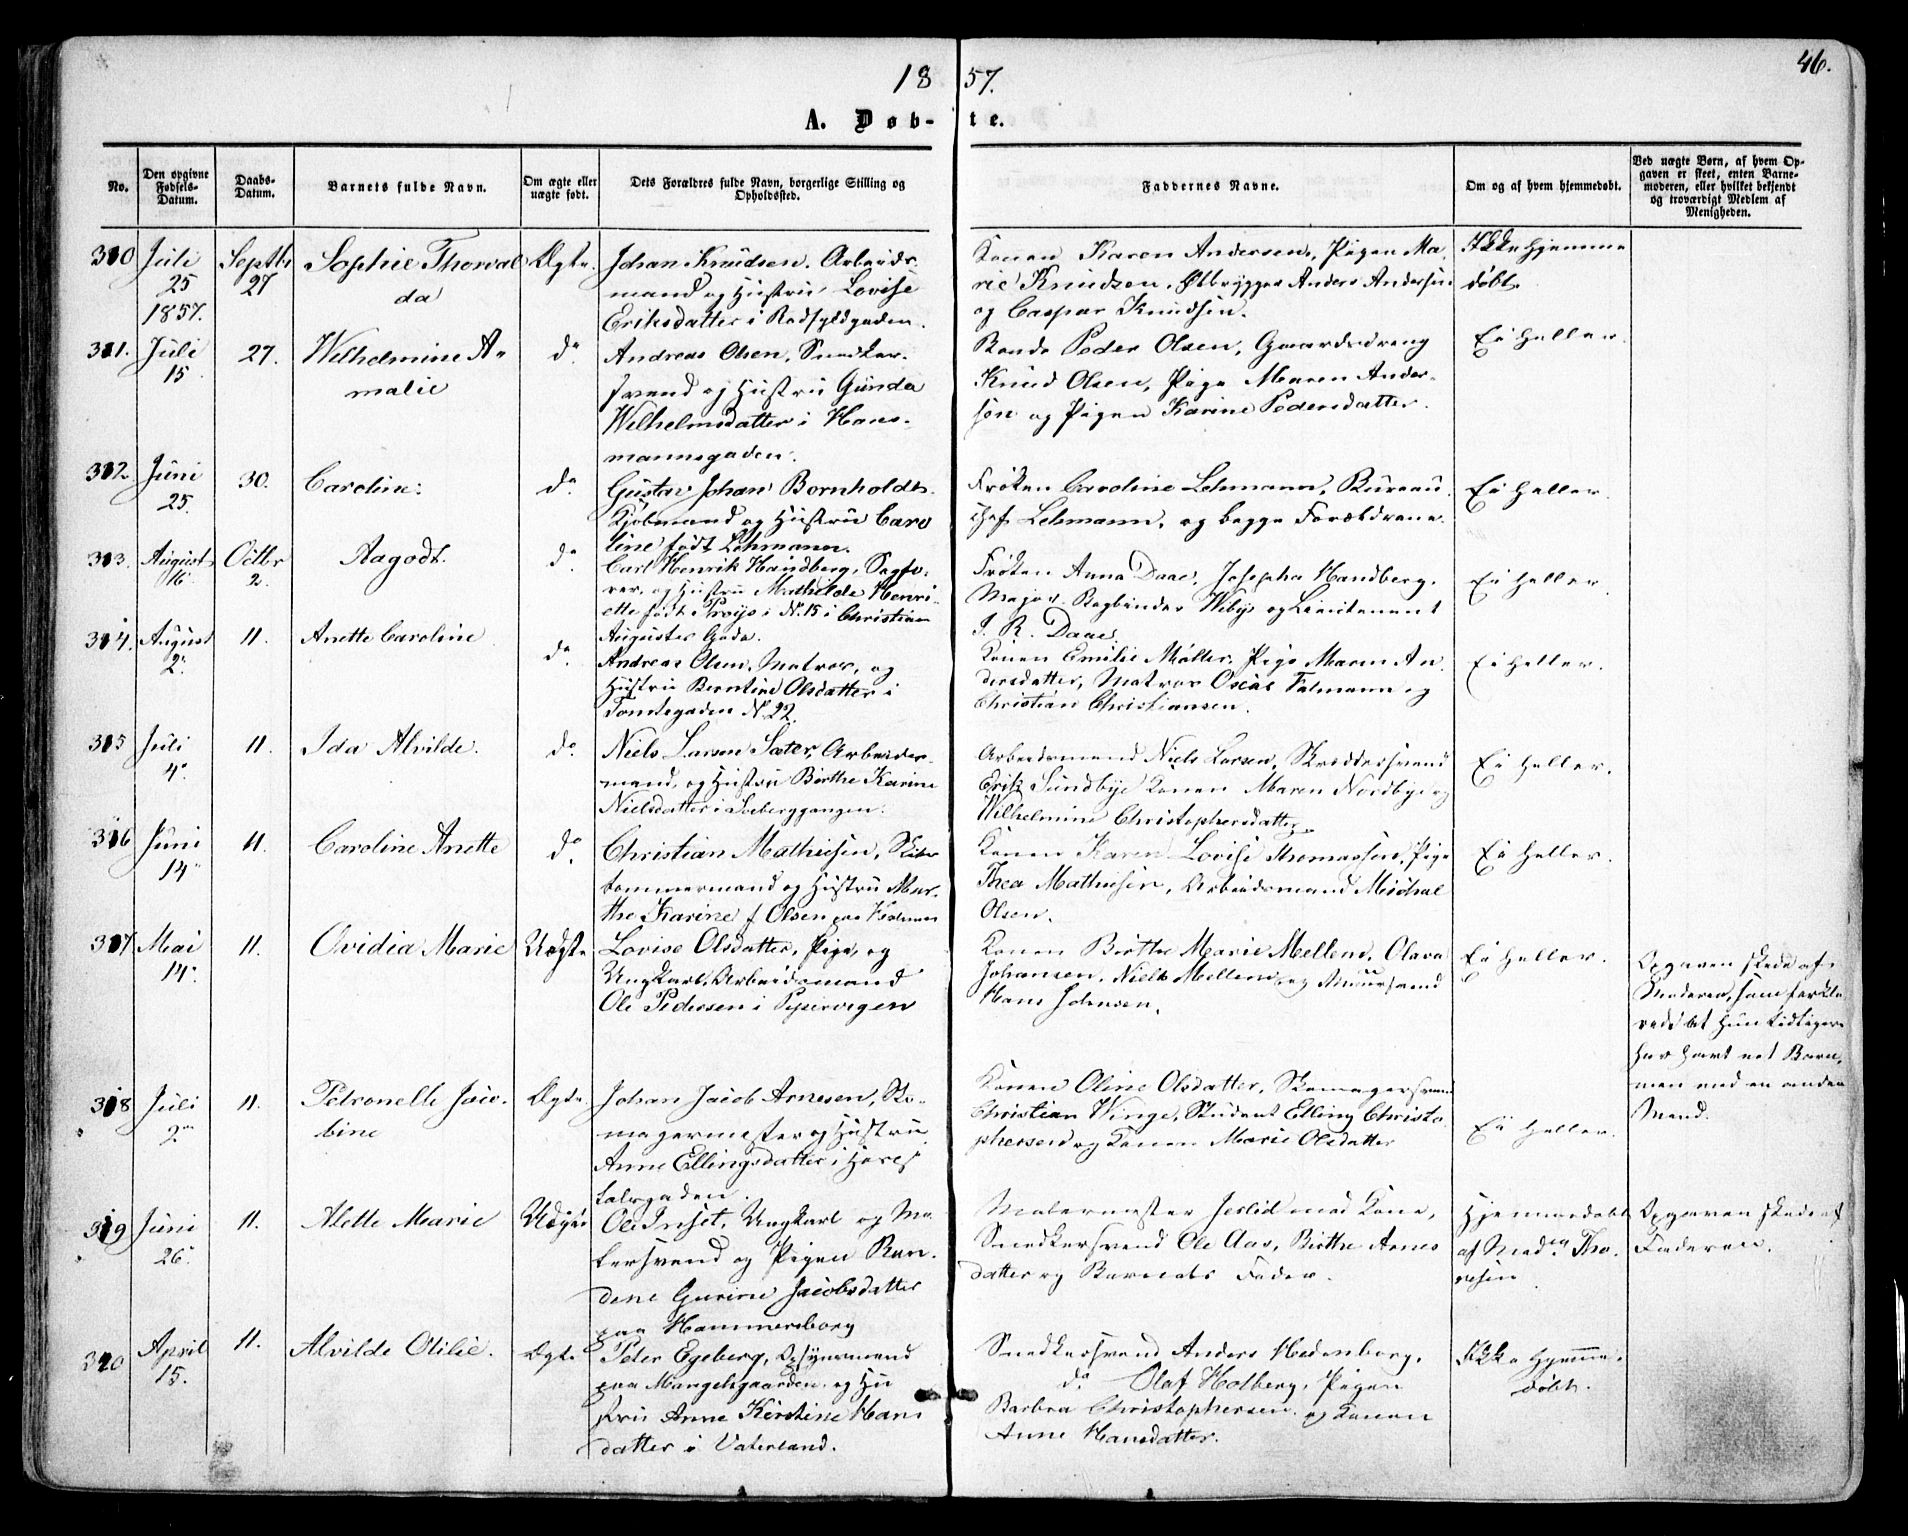 46.
1857.
A. Døbte.
No.
Den opgivne Fødsels-Datum.
Daabs-Datum.
Barnets fulde Navn.
Om ægte eller uægte født.
Dets Forældres fulde Navn, borgerlige Stilling og Opholdssted.
Faddernes Navne.
Om og af hvem hjemmedøbt.
Ved uægte Børn, af hvem Opgaven er skeet, enten Barnemoderen, eller hvilket bekjendt og troværdigt Medlem af Menigheden.
310
Juli 25 1857.
Septbr 27
Sophie Thorvalda
Ægte.
Johan Knudsen. Arbeids-
mand og Hustru Lovise
Eriksdatter i Rodfyldgaden.
Konen Karen Andersen, Pigen Ma-
rie Knudsen, Ølbrygger Anders Andersen
og Caspar Knudsen.
Ikke hjemme
døbt.
311.
Juli 15
27.
Wilhelmine A-
malie
do
Andreas Olsen, Snedker-
svend og Hustru Gunda
Wilhelmsdatter i Haus-
mannsgaden.
Bonde Peder Olsen, Gaardsdreng
Knud Olsen, Pige Maren Ander-
sen og Pigen Karine Pedersdatter.
Ei heller.
312
Juni 25.
30.
Caroline.
do
Gustav Johan Bornholdt.
Kjøbmand og Hustru Caro
line født Lehmann.
Frøken Caroline Lehmann, Bureau-
chef Lehmann, og begge Forældrene.
Ei heller.
313.
August 16
Octbr 2.
Aagodt.
do
Carl Henrik Handberg, Sagfø-
rer, og Hustru Mathilde Henri-
ette født i No 15 i Christian
Augusts Gade.
Frøken Anna Daae, Josepha Handberg,
Major Wiby og Lieutenant
J. R. Daae.
Ei heller.
314.
August 2.
11.
Anette Caroline
do
Andreas Olsen, Matros, og
Hustru Berntine Olsdatter i
Tomtegaden No 22.
Konen Emilie Møller, Pige Maren An-
dersdatter, Matros Oscar Talmann og
Christian Christiansen.
Ei heller.
315
Juli 4.
11.
Ida Alvilde.
do
Niels Larsen Sæter, Arbeids-
mand, og Hustru Birthe Karine
Nielsdatter i
Arbeidsmand Niels Larsen, Skreddersvend
Erik Sundbye Konen Maren Nordbye og
Wilhelmine Christophersdatter.
Ei heller.
316
Juni 14
11.
Caroline Anette
do
Christian Mathiesen, Skibs
tømmermand og Hustru Mar-
the Karine f. Olsen paa
Konen Karen Lovise Thomassen, Pige
Thea Mathiesen, Arbeidsmand Michal
Olsen.
Ei heller.
317.
Mai 14.
11.
Ovidia Marie
Uægte
Lovise Olsdatter, Pige, og
Ungkarl, Arbeidsmand
Ole Pedersen i Pipervigen
Konen Birthe Marie Mellem, Olava
Johansen, Niels Mellem og Muursvend
Hans Johnsen.
Ei heller.
Opgaven skede af
Moderen, som forkla-
rede at hun tidligere
har havt et Barn,
men med en anden
Mand.
318
Juli 2
11.
Petronelle Jaco-
bine
Ægte.
Johan Jacob Arnesen, Sko-
magermester og Hustru
Anne Ellingsdatter i
Konen Oline Olsdatter, Skomagersvend
Christian Winge, Student Elling Christo-
phersen og Konen Marie Olsdatter
Ei heller.
319
Juni 26.
11.
Alette Marie
Uægte
Ole Inset, Ungkarl og Ma-
lersvend og Pigen Ran-
dene Gurine Jacobsdatter
paa Hammersborg
Malermester med Kone,
Snedkersvend Ole Aas, Birthe Arnes
datter og Barnets Fader.
Hjemmedøbt
af Madm Tho-
resen
Opgaven skede af
Faderen.
320
April 15.
11.
Alvilde Otilie.
Ægte
Peter Egeberg, Opsynsmand
paa Mangelsgaarden, og Hu
stru Anne Kirstine Hans
datter i Vaterland.
Snedkersvend Anders Hedenborg,
do Olaf Holberg, Pigen
Barbra Christophersen og Konen
Anne Hansdatter.
Ikke hjemme-
døbt.